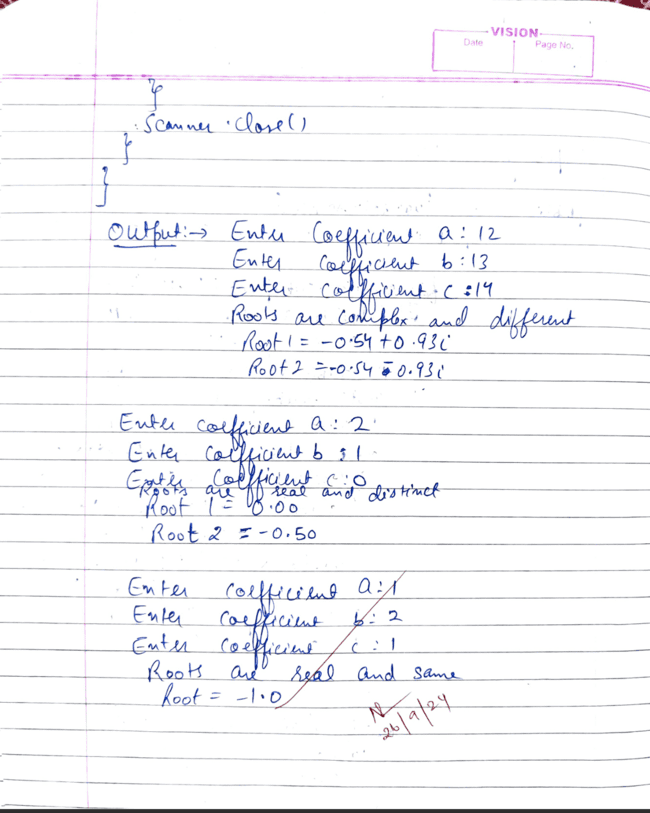 VISION
Date
Page No.
}
Scanner.close()
}
}
Output:→ Enter Coefficient a: 12
Enter Coefficient b:13
Enter Coefficient c:14
Roots are complex and different
Root 1 = -0.54+0.93i
Root 2 = -0.54-0.93i
Enter coefficient a: 2
Enter Coefficient b:1
Enter Coefficient c:0
Roots are real and distinct
Root 1 = 0.00
Root 2 = -0.50
Enter coefficient a:1
Enter Coefficient b: 2
Enter Coefficient c: 1
Roots are real and same
Root = -1.0
26/9/24